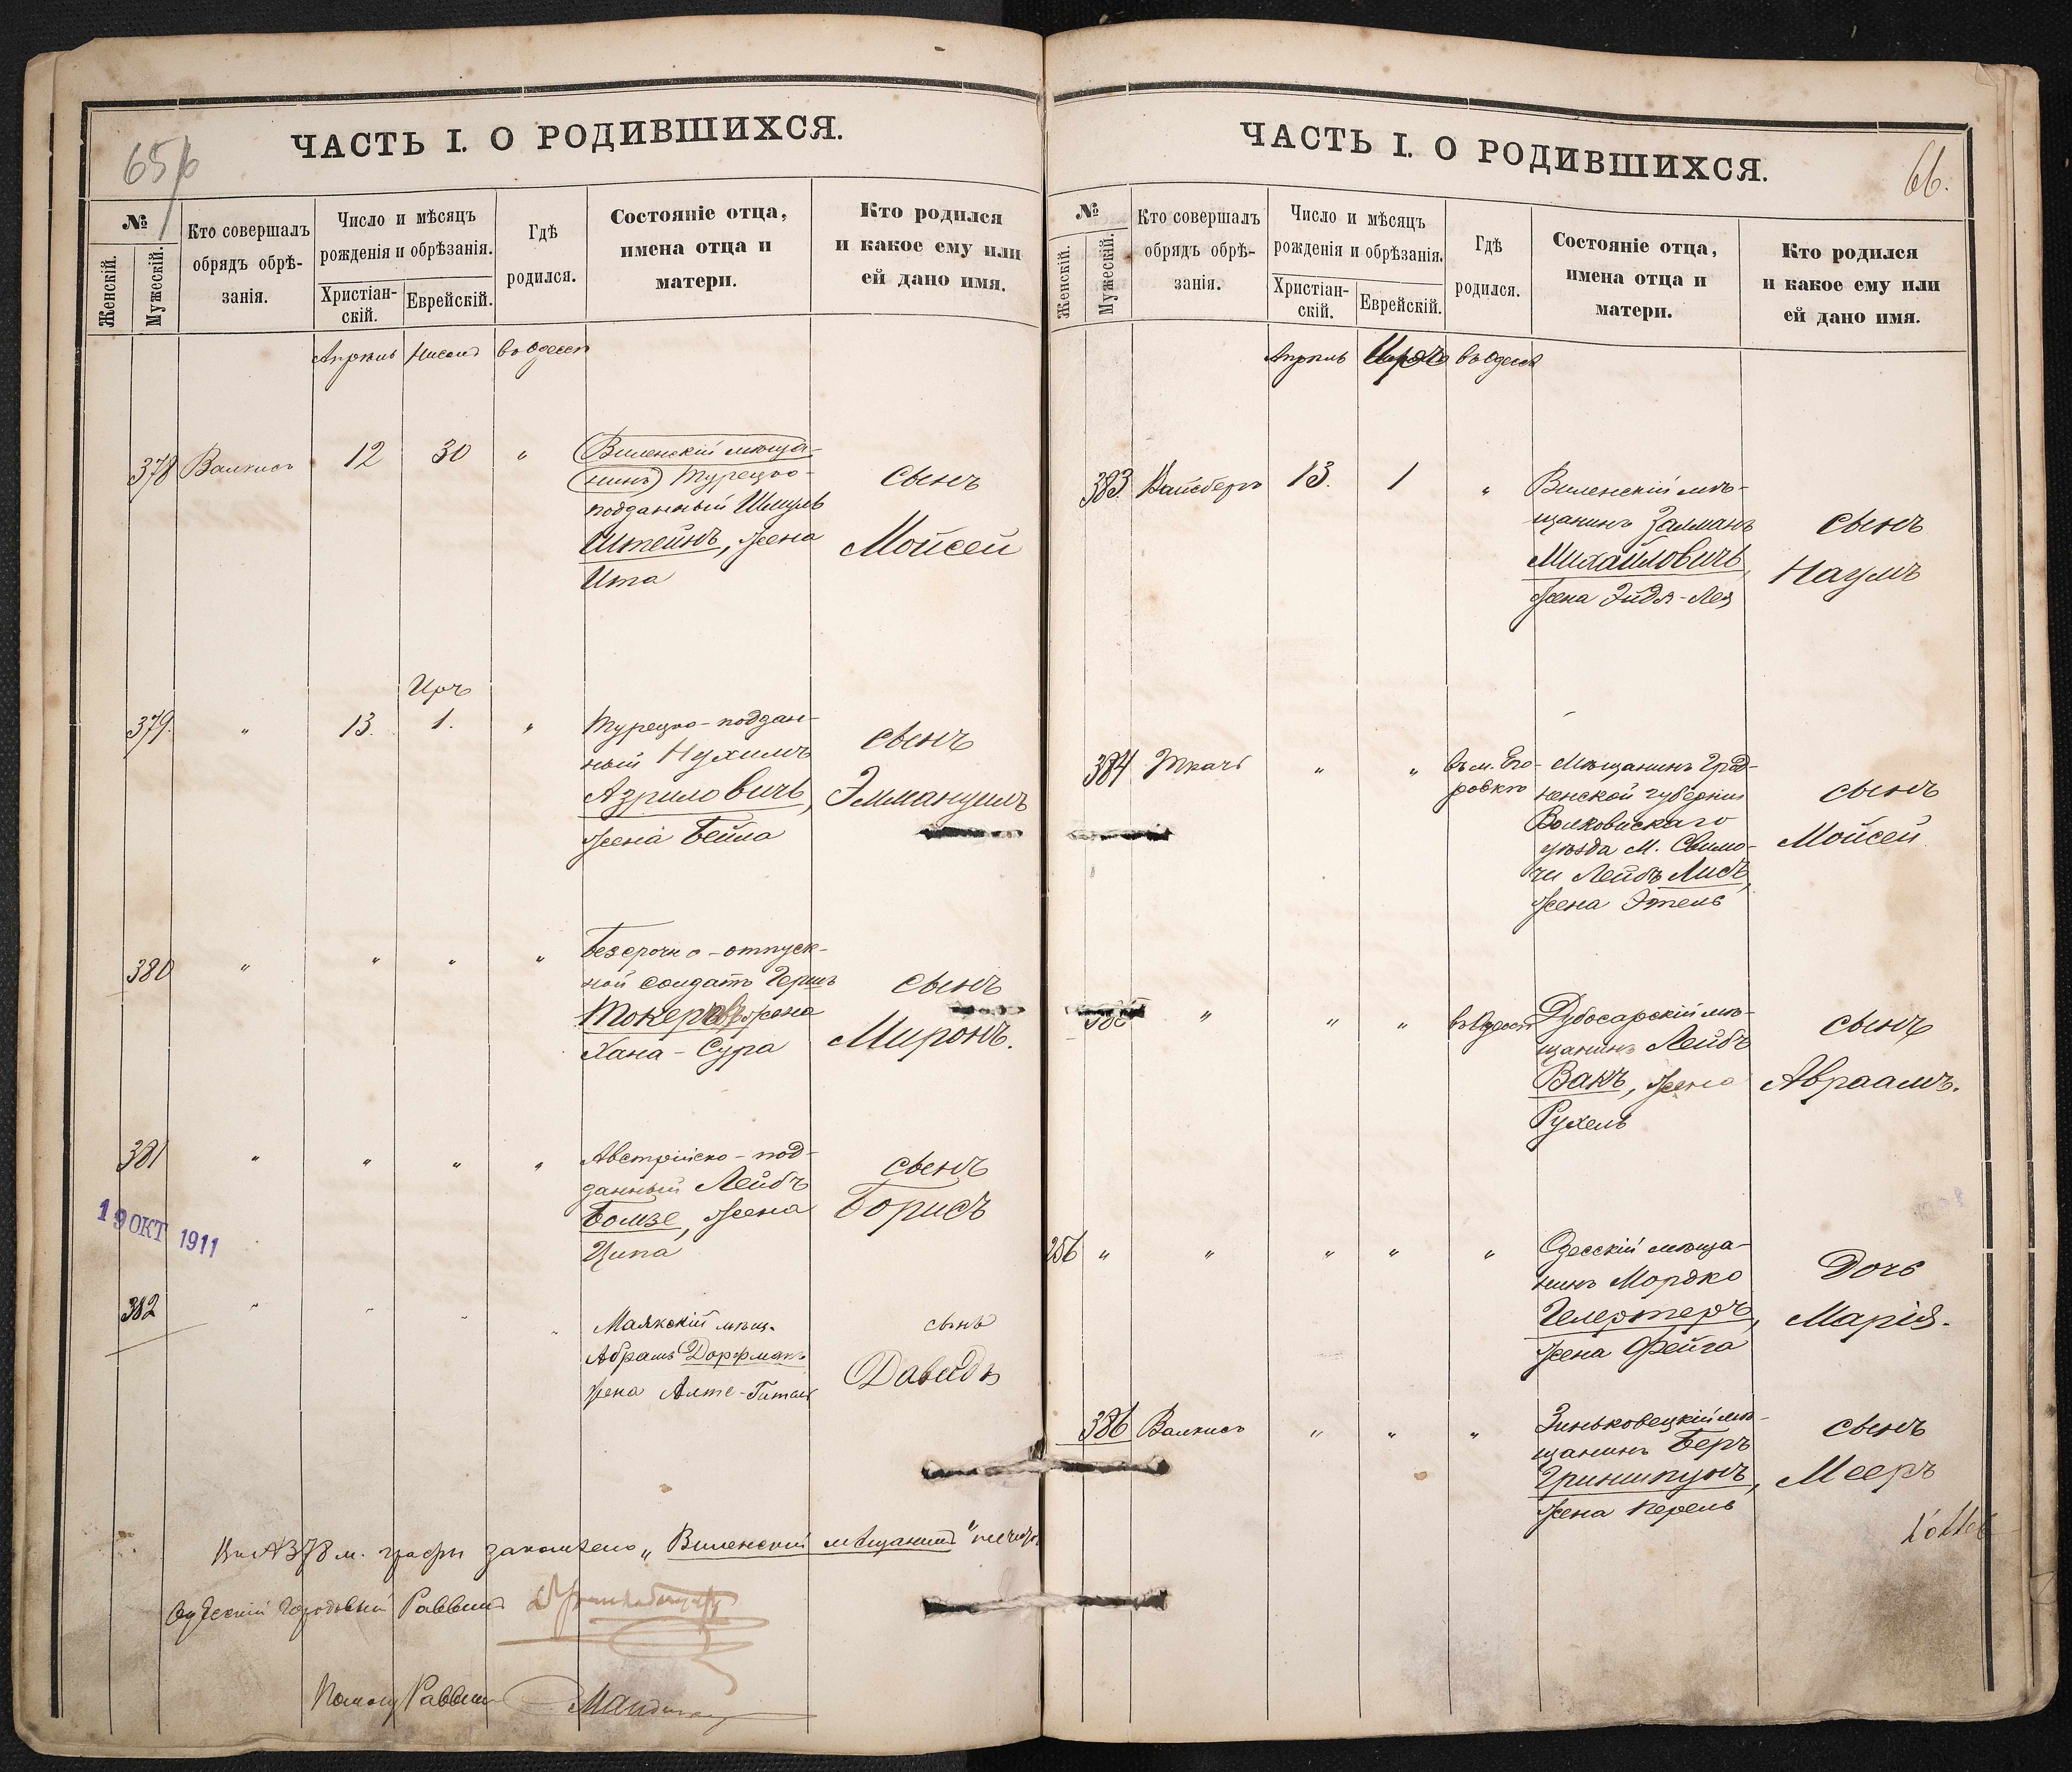 65 б
ЧАСТЬ I. О РОДИВШИХСЯ.
№
Женскій.
Мужескій.
Кто совершалъ
обрядъ обрѣ-
занія.
Число и мѣсяцъ
рожденія и обрѣзанія.
Христіан-
скій.
Еврейскій.
Гдѣ
родился.
Состояніе отца,
имена отца и
матери.
Кто родился
и какое ему или
ей дано имя.
Апрѣль Нисонъ въ Одессѣ
378 Валкисъ 12 30 "
Виленскій мѣща-
нинъ Турецко-
подданный Шмуль
Штейнъ, жена
Ита
сынъ
Мойсей
Иръ
379. " 13. 1. "
Турецко-поддан-
ный Нухимъ
Азриловичъ,
жена Бейла
сынъ
Эммануилъ
380 " " " "
Безсрочно-отпуск-
ной солдатъ Гершъ
Токеръ жена
Хана-Сура
сынъ
Миронъ.
381 " " " "
Австрійско-под-
данный Лейбъ
Бомзе, жена
Ципа
сынъ
Борисъ
19 ОКТ 1911
382 " " " "
Маякскій мѣщ.
Абрамъ Дорфманъ
жена Алте-Гитля
сынъ
Давидъ
378 м. графы зачеркнуто „Виленскій мѣщанинъ"
Городовый Раввинъ
Раввин
66.
ЧАСТЬ I. О РОДИВШИХСЯ.
№
Женскій.
Мужескій.
Кто совершалъ
обрядъ обрѣ-
занія.
Число и мѣсяцъ
рожденія и обрѣзанія.
Христіан-
скій.
Еврейскій.
Гдѣ
родился.
Состояніе отца,
имена отца и
матери.
Кто родился
и какое ему или
ей дано имя.
Апрѣль Иръ въ Одессѣ
383. Вайсберъ 13. 1 "
Виленскій мѣ-
щанинъ Залманъ
Михайловичъ,
жена Эйдя-Лея
сынъ
Наумъ
384 Ткачъ " "
въ м. Его-
ровкѣ
Мѣщанинъ Грод-
ненской губерніи
Волковискаго
уѣзда м. Свисло-
чи Лейбъ Либъ,
жена Этель
сынъ
Мойсей
385 " " " въ Одессѣ
Дубосарскій мѣ-
щанинъ Лейбъ
Вакъ, жена
Рухель
сынъ
Авраамъ.
256 " " " " "
Одесскій мѣща-
нинъ Мордко
Гелертеръ,
жена Фейга
Дочь
Марія.
386 Валкисъ " " "
Зиньковецкій мѣ-
щанинъ Беръ
Гриншпунъ,
жена Перель
сынъ
Мееръ